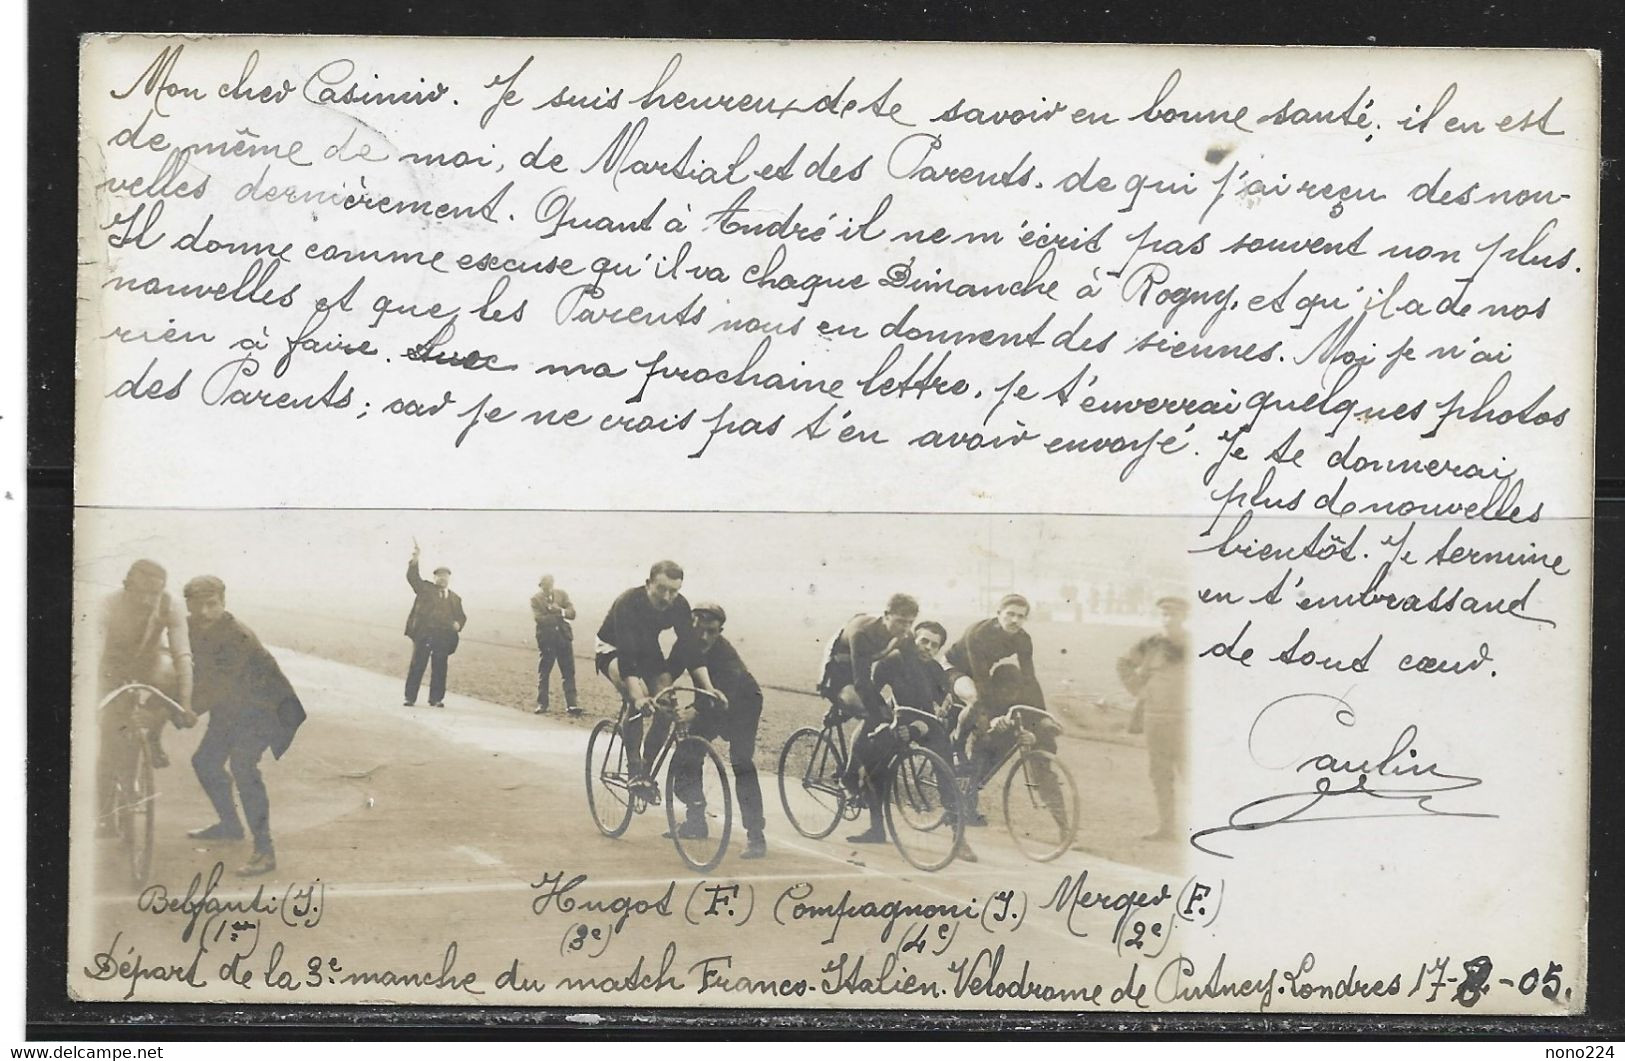 Mon cher Casimir. Je suis heureux de te savoir en bonne santé; il en est
de même de moi, de Martial et des Parents. de qui j'ai reçu des nou-
velles dernièrement. Quant à André il ne m'écrit pas souvent non plus.
Il donne comme excuse qu'il va chaque Dimanche à Rogny, et qu'il a de nos
nouvelles et que les Parents nous en donnent des siennes. Moi je n'ai
rien à faire. Avec ma prochaine lettre, je t'enverrai quelques photos
des Parents; car je ne crois pas t'en avoir envoyé. Je te donnerai
plus de nouvelles
bientôt. Je termine
en t'embrassand
de tout cœur.
Paulin
Belfanti (I.) Hugot (F.) Compagnoni (I.) Merger (F.)
(1er) (3e) (4e) (2e)
Départ de la 3e manche du match Franco-Italien. Vélodrome de Putney. Londres 17-8-05.
nono224